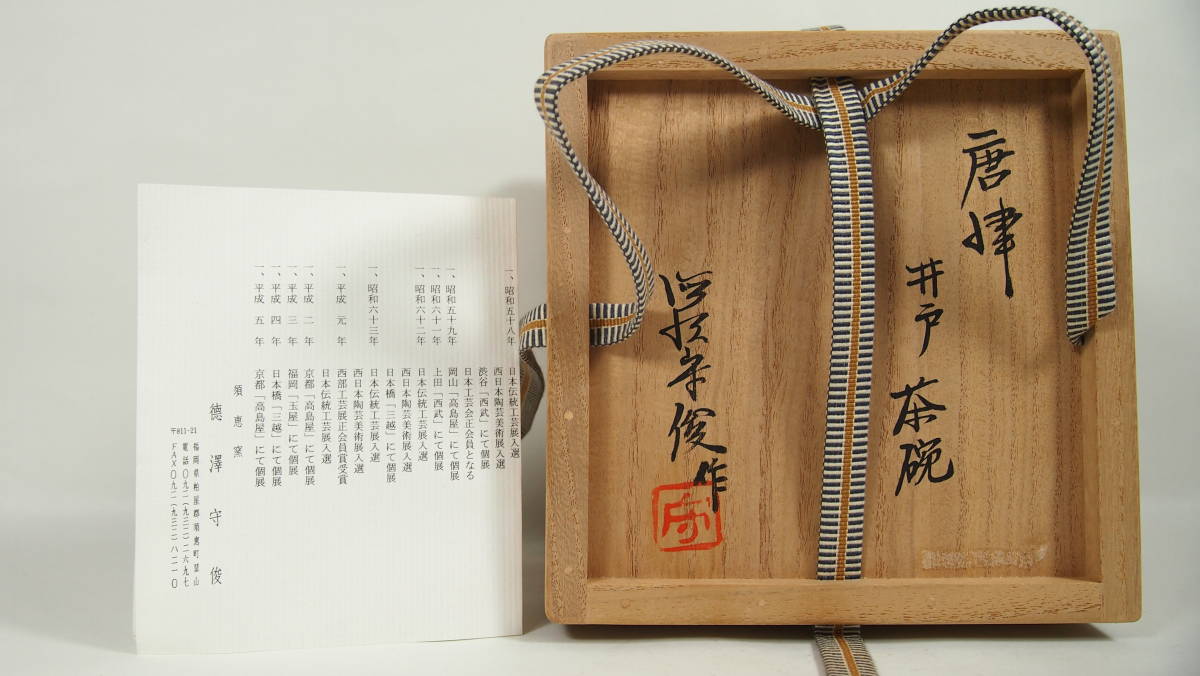 一、昭和五十八年 日本伝統工芸展入選
西日本陶芸美術展入選
渋谷「西武」にて個展
一、昭和五十九年 日本工芸会正会員となる
岡山「高島屋」にて個展
一、昭和六十一年 上田「西武」にて個展
一、昭和六十二年 日本伝統工芸展入選
西日本陶芸美術展入選
日本橋「三越」にて個展
一、昭和六十三年 日本伝統工芸展入選
西日本陶芸美術展入選
一、平成元年 西部工芸展正会員賞受賞
日本伝統工芸展入選
一、平成二年 京都「高島屋」にて個展
一、平成三年 福岡「玉屋」にて個展
一、平成四年 日本橋「三越」にて個展
一、平成五年 京都「高島屋」にて個展
須恵窯
德澤守俊
〒811-21
福岡県粕屋郡須恵町皿山
電話〇九二(九三二)二六九七
FAX〇九二(九三三)八二一〇
唐津
井戸茶碗
德澤守俊作
守